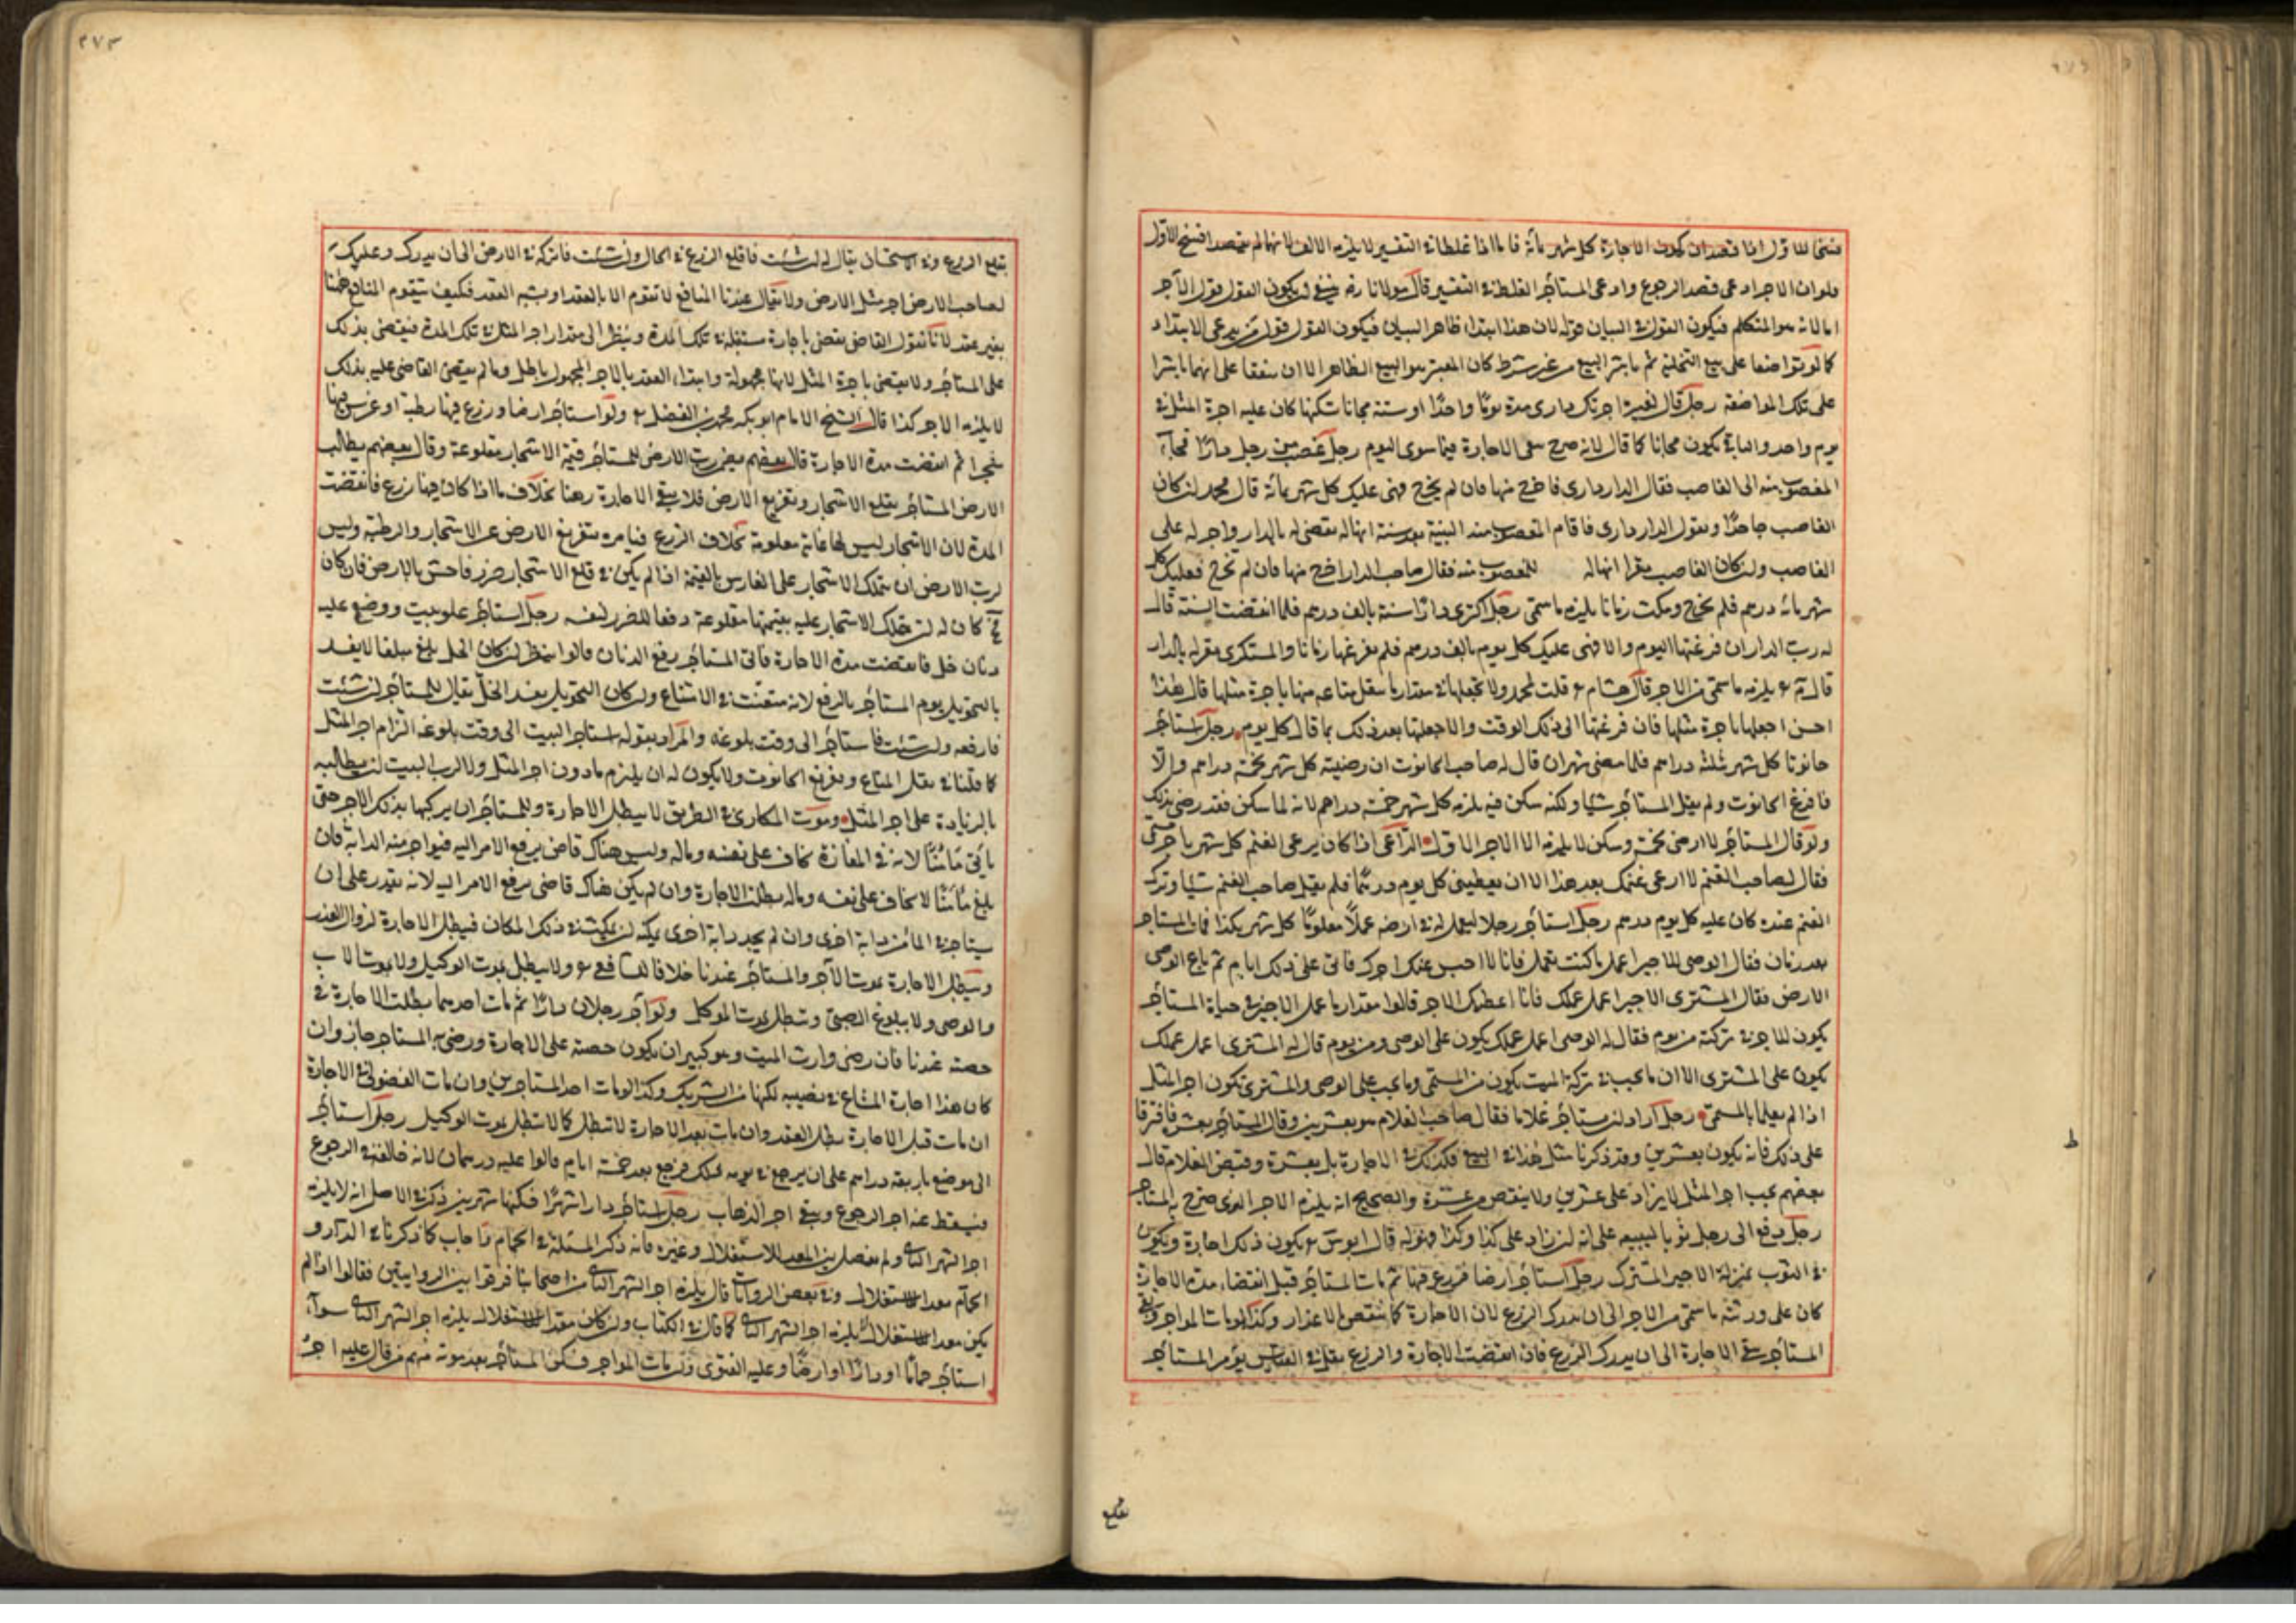 فسخا للاول اذا قصد ان يكون الاجارة كل شهر بمائة فاما اذا غلطا في التفسير لا يلزمه الالف لانهما لم يقصدا فسخ الاول
ولو ان الاجر ادعى قصد الرجوع وادعى المستأجر الغلط في التفسير قال مولانا رضه ينبغي ان يكون القول قول الآجر
اما لانه هو المتكلم فيكون القول في البيان قوله لان هذا ابتداء ظاهر البيان فيكون القول قول من يدعي الابتداء
كما لو تواضعا على بيع التلجئة ثم باشرا البيع من غير شرط كان المعتبر هو البيع الظاهر الا ان يتفقا على انهما باشرا
على تلك المواضعة رجل قال لغيره اجرتك داري مدة يوما واحدا او سنة مجانا تسكنها كان عليه اجرة المثل في
يوم واحد والباقي يكون مجانا كما قال لانه صرح بنفي الاجارة فيما سوى اليوم رجل غصب من رجل دارا فجاء
المغصوب منه الى الغاصب فقال الدار داري فاخرج منها فان لم يخرج فهي عليك كل شهر بمائة قال محمد ان كان
الغاصب جاحدا ويقول الدار داري فاقام المغصوب منه البينة بعد سنة انها له يقضى له بالدار ولا اجر له على
الغاصب وان كان الغاصب مقرا انها له للمغصوب منه فقال صاحب الدار اخرج منها فان لم تخرج فعليك كل
شهر مائة درهم فلم يخرج ومكث زمانا يلزمه ما سمى رجل اكترى دارا سنة بالف درهم فلما انقضت السنة قال
له رب الدار ان فرغتها اليوم والا فهي عليك كل يوم بالف درهم فلم يفرغها زمانا والمستكري مقر له بالدار
قال م ع يلزمه ما سمى من الاجر قال هشام ع قلت لمحمد ولا تجعلها في مقدار ما ينقل متاعه منها باجرة مثلها قال هذا
احسن اجعلها باجرة مثلها فان فرغها الى ذلك الوقت والا جعلتها بعد ذلك بما قال كل يوم رجل استأجر
حانوتا كل شهر بثلثة دراهم فلما مضى شهران قال له صاحب الحانوت ان رضيته كل شهر بخمسة دراهم والا
فافرغ الحانوت ولم يقل المستأجر شيئا ولكنه سكن فيه يلزمه كل شهر خمسة دراهم لانه لما سكن فقد رضي بذلك
ولو قال المستأجر لا ارضى بخمسة وسكن لا يلزمه الا الاجر الاول الراعي اذا كان يرعى الغنم كل شهر باجر مسمى
فقال لصاحب الغنم لا ارعى غنمك بعد هذا الا ان تعطيني كل يوم درهما فلم يقل صاحب الغنم شيئا وترك
الغنم عنده كان عليه كل يوم درهم رجل استأجر رجلا ليعمل له في ارضه عملا معلوما كل شهر بكذا فمات المستأجر
بعد زمان فقال الوصي للاجير اعمل ما كنت تعمل فانا لا احبس عنك اجرك فاتى على ذلك ايام ثم باع الوصي
الارض فقال المشتري للاجير اعمل عملك فانا اعطيك الاجر قالوا مقدار ما عمل الاجير في حياة المستأجر
يكون للاجر في تركته من يوم فقال له الوصي اعمل عملك يكون على الوصي ومن يوم قال له المشتري اعمل عملك
يكون على المشتري الا ان ما يجب في تركة الميت يكون من المسمى وما يجب على الوصي والمشتري يكون اجر المثل
اذا لم يعلما بالمسمى رجل اراد ان يستأجر غلاما فقال صاحب الغلام هو بعشرين وقال المستأجر بعشرة فافترقا
على ذلك فانه يكون بعشرين وقد ذكرنا مثل هذا في البيع فكذلك في الاجارة بل بعشرة وقبض الغلام قال
بعضهم يجب اجر المثل لا يزاد على عشرين ولا ينقص من عشرة والصحيح انه يلزمه الاجر الذي صرح به المستأجر
رجل دفع الى رجل ثوبا ليبيعه على انه ان زاد على كذا وكذا فهو له قال ابو يوسف ع يكون ذلك اجارة ويكون
في الثوب بمنزلة الاجير المشترك رجل استأجر ارضا فزرع فيها ثم مات المستأجر قبل انقضاء مدة الاجارة
كان على ورثته ما سمى من الاجر الى ان يدرك الزرع لان الاجارة كما تنتقض بالاعذار وكذا لو مات المواجر وبقي
المستأجر تبقى الاجارة الى ان يدرك الزرع فان انقضت الاجارة والزرع بقل في القياس يؤمر المستأجر
بقلع
٢٧٣
بقلع الزرع وفي الاستحسان يقال له ان شئت فاقلع الزرع في الحال وان شئت فاتركه في الارض الى ان يدرك وعليك
لصاحب الارض اجر مثل الارض ولا يقال عندنا المنافع لا تتقوم الا بالعقد او بشبه العقد فكيف تتقوم المنافع ههنا
بغير عقد لانا نقول القاضي يقضي باجارة مستقبلة في تلك المدة وينظر الى مقدار اجر المثل في تلك المدة فيقضي بذلك
على المستأجر ولا يقضي باجرة المثل لانها مجهولة وابتداء العقد بالاجر المجهول باطل وما لم يقض القاضي عليه بذلك
لا يلزمه الاجر كذا قال الشيخ الامام ابو بكر محمد بن الفضل ع ولو استأجر ارضا وزرع فيها رطبة او غرس فيها
شجرا ثم انقضت مدة الاجارة قال بعضهم يضمن رب الارض للمستأجر قيمة الاشجار مقلوعة وقال بعضهم يطالب
الارض المستأجر بقلع الاشجار وتفريغ الارض فلا يبقى الاجارة رهنا بخلاف ما اذا كان فيها زرع فانقضت
المدة لان الاشجار ليس لها غاية معلومة بخلاف الزرع فيأمره بتفريغ الارض عن الاشجار والرطبة وليس
لرب الارض ان يتملك الاشجار على الغارس بالقيمة اذا لم يكن في قلع الاشجار ضرر فاحش بالارض فان كان
كان له ان يتملك الاشجار عليه بقيمتها مقلوعة دفعا للضرر لنفسه رجل استأجر علو بيت ووضع عليه
دنان خل فانقضت مدة الاجارة فابى المستأجر رفع الدنان قالوا ينظر ان كان الخل بلغ مبلغا لا يفسد
بالتحويل يؤمر المستأجر بالرفع لانه متعنت في الامتناع وان كان التحويل يفسد الخل يقال للمستأجر ان شئت
فارفعه وان شئت فاستأجر الى وقت بلوغه والمراد بقوله استأجر البيت الى وقت بلوغه التزام اجر المثل
كما قلنا في نقل المتاع وتفريغ الحانوت ولا يكون له ان يلتزم ما دون اجر المثل ولا لرب البيت ان يطالبه
بالزيادة على اجر المثل وموت المكاري في الطريق لا يبطل الاجارة وللمستأجر ان يركبها بذلك الاجر حتى
يأتي مأمنا لانه في المفازة يخاف على نفسه وماله وليس هناك قاض يرفع الامر اليه فيؤاجر منه الدابة فان
بلغ مأمنا لا يخاف على نفسه وماله بطلت الاجارة وان لم يكن هناك قاضي يرفع الامر اليه لانه يقدر على ان
يستأجر في المأمن دابة اخرى وان لم يجد دابة اخرى يمكنه ان يمكث في ذلك المكان فيبطل الاجارة لزوال العذر
ويبطل الاجارة بموت الآجر والمستأجر عندنا خلافا للشافعي ع ولا يبطل بموت الوكيل ولا بموت الاب
والوصي ولا ببلوغ الصبي وتبطل بموت الموكل ولو آجر رجلان دارا ثم مات احدهما بطلت الاجارة في
حصته عندنا فان رضي وارث الميت وهو كبير ان يكون حصته على الاجارة ورضي به المستأجر جاز وان
كان هذا اجارة المشاع في نصيبه لكنها من الشريك وكذا لو مات احد المستأجرين وان مات الفضولي في الاجارة
ان مات قبل الاجازة بطل العقد وان مات بعد الاجازة لا تبطل كما لا تبطل بموت الوكيل رجل استأجر
الى موضع باربعة دراهم على ان يرجع في يومه ذلك فرجع بعد خمسة ايام قالوا عليه درهمان لانه خالفه في الرجوع
فيسقط عنه اجر الرجوع وبقي اجر الذهاب رجل استأجر دارا شهرا فسكنها شهرين ذكر في الاصل انه لا يلزمه
اجر الشهر الثاني ولم يفصل بين المعد للاستغلال وغيره فانه ذكر المسئلة في الحمام واجاب كما ذكرنا في الدار و
الحمام معد للاستغلال وفي بعض الروايات قال يلزمه اجر الشهر الثاني من اصحابنا فرقوا بين الروايتين فقالوا اذا لم
يكن معدا للاستغلال لا يلزمه اجر الشهر الثاني كما قال في الكتاب وان كان معدا للاستغلال يلزمه اجر الشهر الثاني سواء
استأجر حماما او دارا او ارضا وعليه الفتوى وان مات المواجر فسكن المستأجر بعد موته منهم من قال عليه اجر